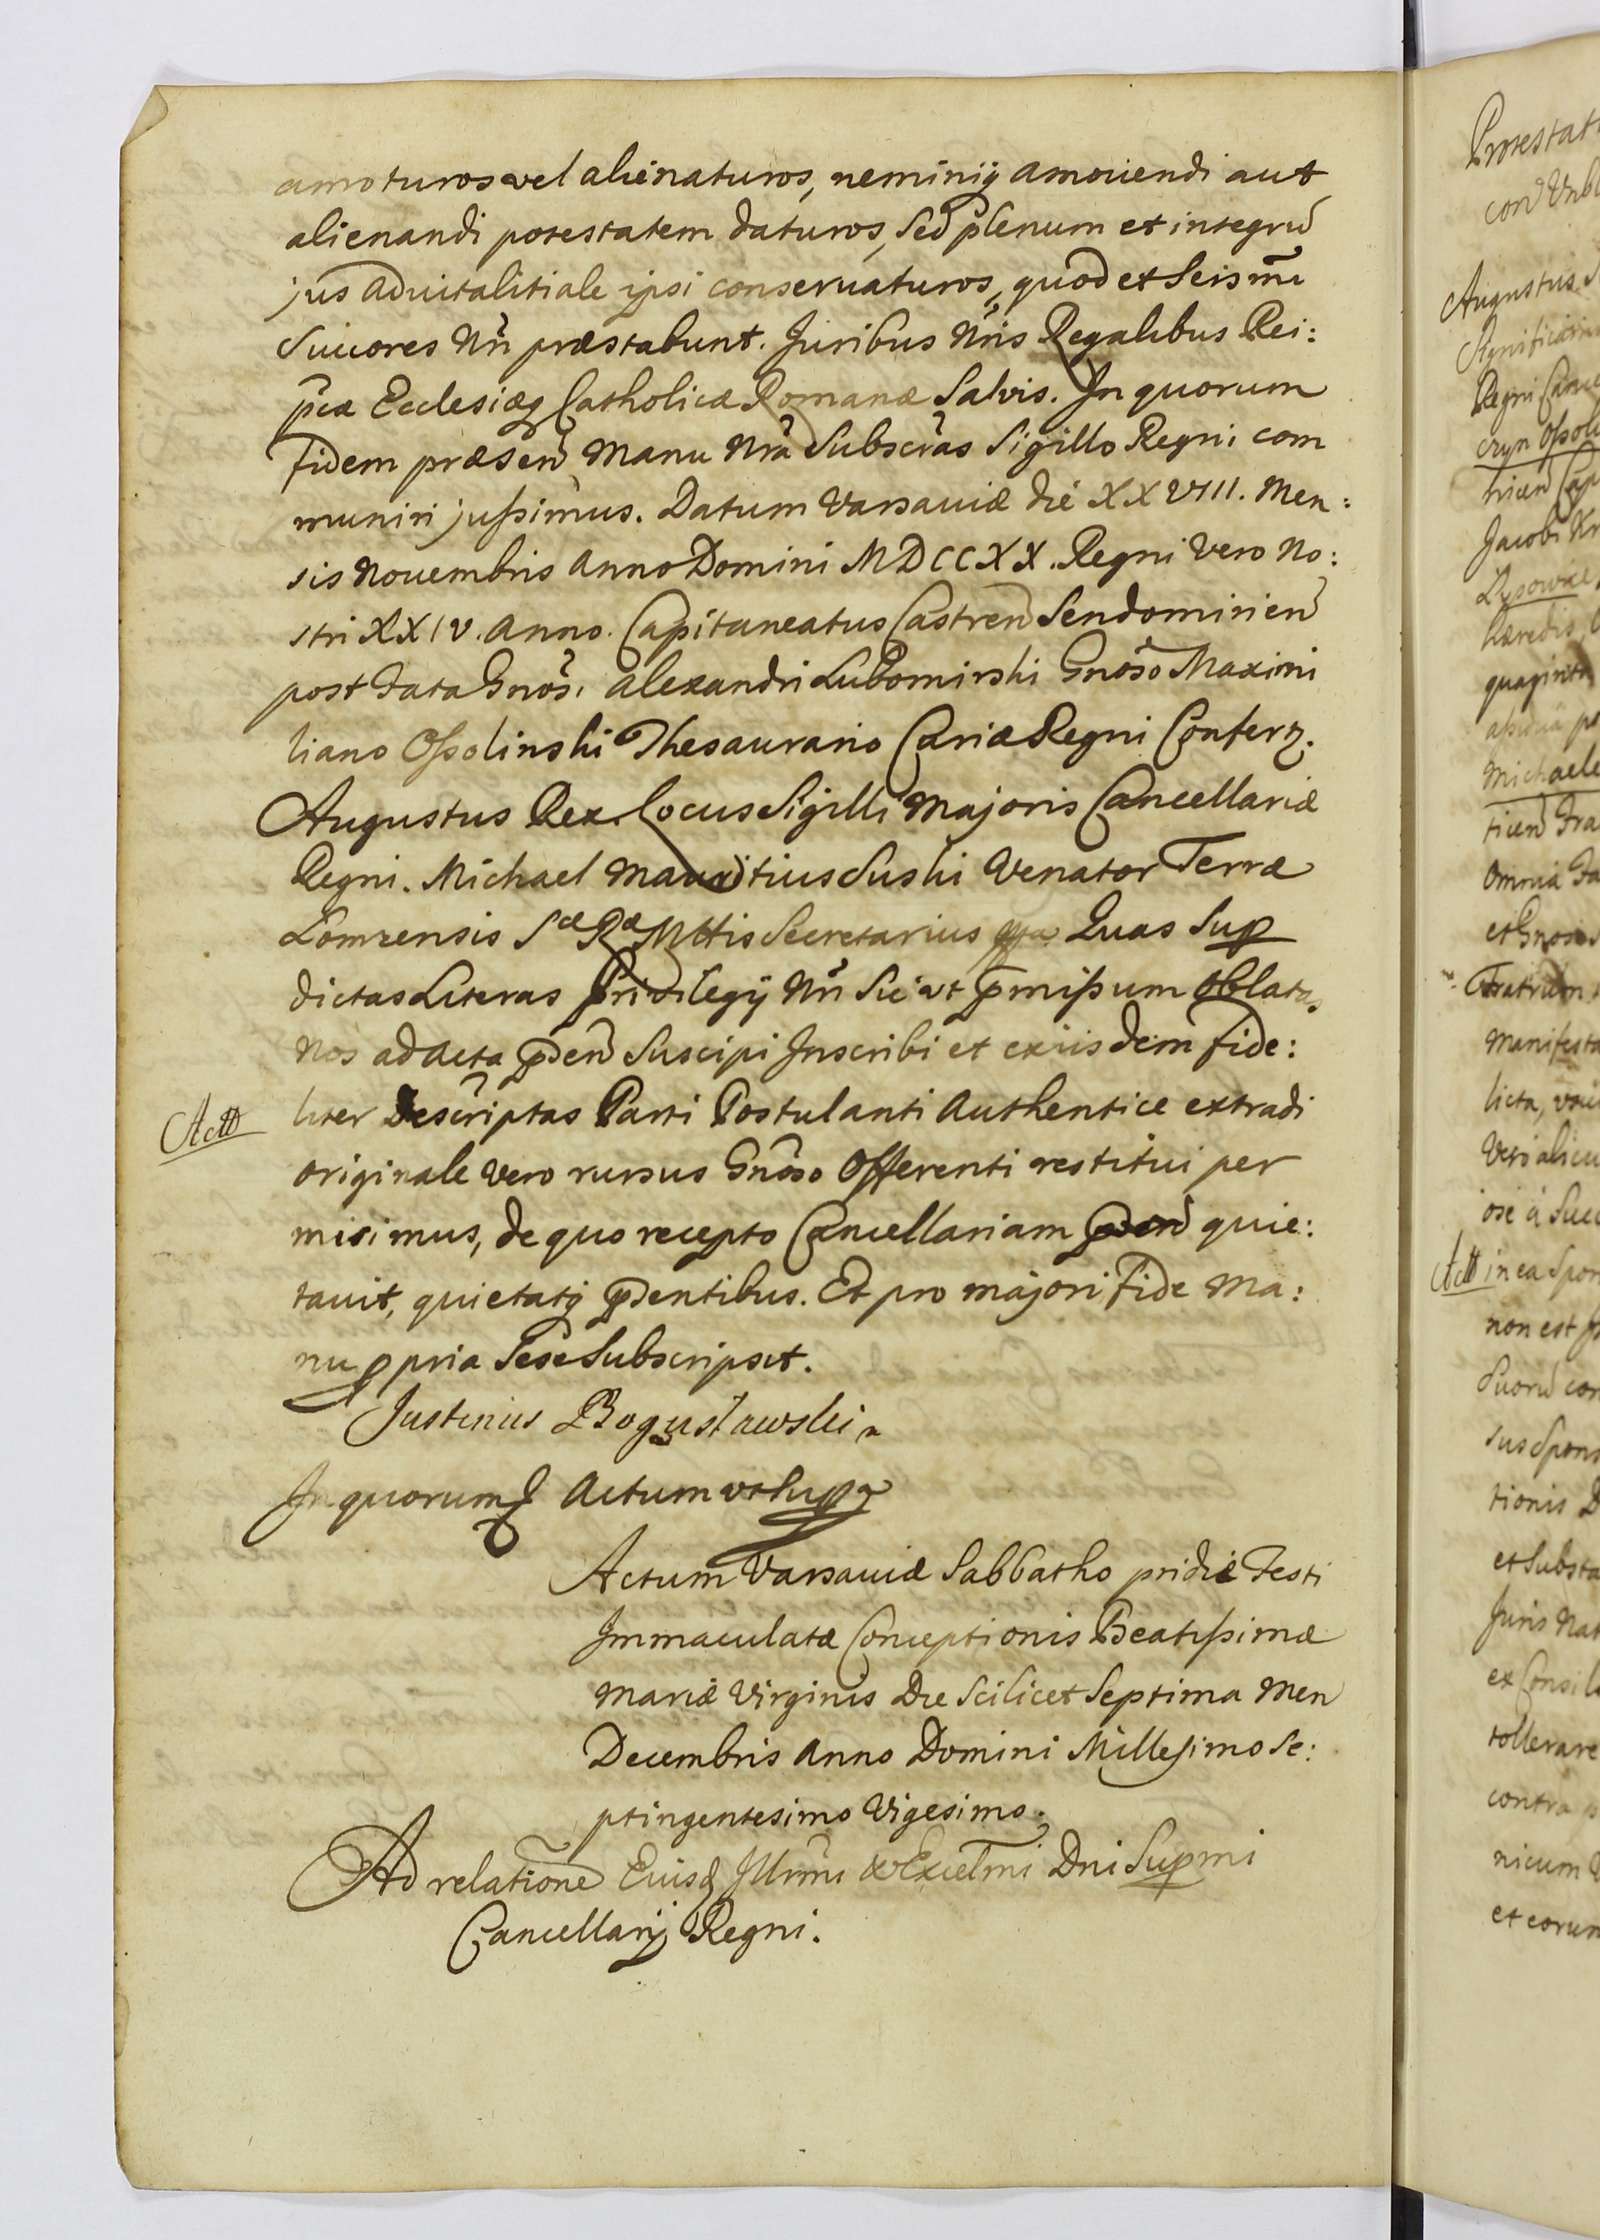 amoturos vel alienaturos, neminiq; amouendi aut
alienandi potestatem daturos, Sed plenum et integrũ
jus aduitalitiale ipsi conseruaturos, quod et Seismi
Succores Nri præstabunt. Juribus Nris Regalibus Rei:
pcæ Ecclesiæq; Catholicæ Romanæ Salvis. In quorum
fidem præsen Manu Nra Subscras Sigillo Regni com
muniri jussimus. Datum Varsauiæ die XXVIII. Men:
sis Nouembris Anno Domini MDCCXX. Regni Vero No:
stri XXIV. Anno. Capitaneatus Castren Sendomirien
post fata Gnosi Alexandri Lubomirski Gnoso Maximi
liano Ossolinski Thesaurario Cariæ Regni Confertz.
Augustus Rex. Locus Sigilli Majoris Cancellariæ
Regni. Michael Mauritius Suski Venator Terræ
Lomzensis Sæ Ræ Mttis Secretarius Quas Sup
dictas Literas Privilegij Nri Sic ut pmissum oblatas
Nos ad Acta pden Suscipi Inscribi et exiisdem fide:
liter Descriptas Parti Postulanti Authentice extradi
Originale Vero rursus Gnoso Offerenti restitui per
misimus, de quo recepto Cancellariam pden quie:
tauit, quietatq; pdentibus. Et pro majori fide Ma:
nu ppria Sese Subscripsit.
Justinius Bogusławski
In quorum Actum ut supa
Actum Varsauiæ Sabbatho pridie Festi
Immaculatæ Conceptionis Beatissimæ
Mariæ Virginis Die Scilicet Septima Men
Decembris Anno Domini Millesimo Se:
ptingentesimo Vigesimo.
Ad relatione Eiusd Illrmi & Excelmi Dni Supmi
Cancellarij Regni.
Actt
Augustus
Regni
Jacobi
Michaele
Omnia
Manifesta
licta,
Actt in ea
non est
tionis
et Substa
Juris Nat
ex Consil
tollerare
contra